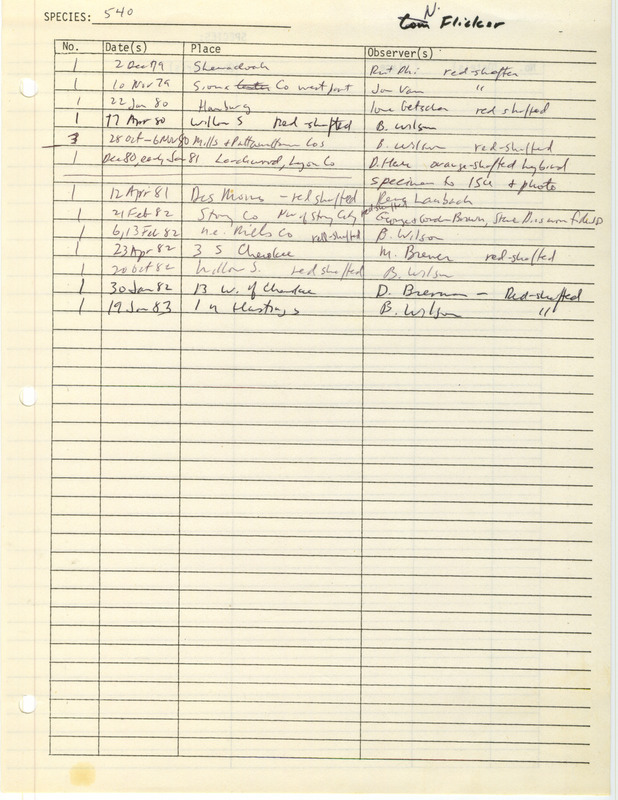 SPECIES: 540
N.
com Flicker
No. Date(s) Place Observer(s)
1 2 Dec 79 Shenandoah red-shafted
1 10 Nov 79 Co west part Jon Van "
1 22 Jan 80 Hamburg Ione Getscher red shafted
1 17 Apr 80 Willow S red-shafted B. Wilson
3 28 Oct-6 Nov 80 Mills + Pottawattamie Cos B. Wilson red-shafted
1 Dec 80, early Jan 81 Larchwood, Lyon Co orange-shafted hybrid
specimen to ISU + photo
1 12 Apr 81 Des Moines - red shafted Laubach
1 21 Feb 82 Story Co N. of Story City red-shafted George + Gordon Brown, Steve Dinsmore
1 6, 13 Feb 82 n.e. Mills Co red-shafted B. Wilson
1 23 Apr 82 3 S Cherokee M. Brewer red-shafted
1 20 Oct 82 Willow S. red shafted B. Wilson
1 30 Jan 82 13 W. of Cherokee D. Bierman - Red-shafted
1 19 Jan 83 1 n Hastings B. Wilson "